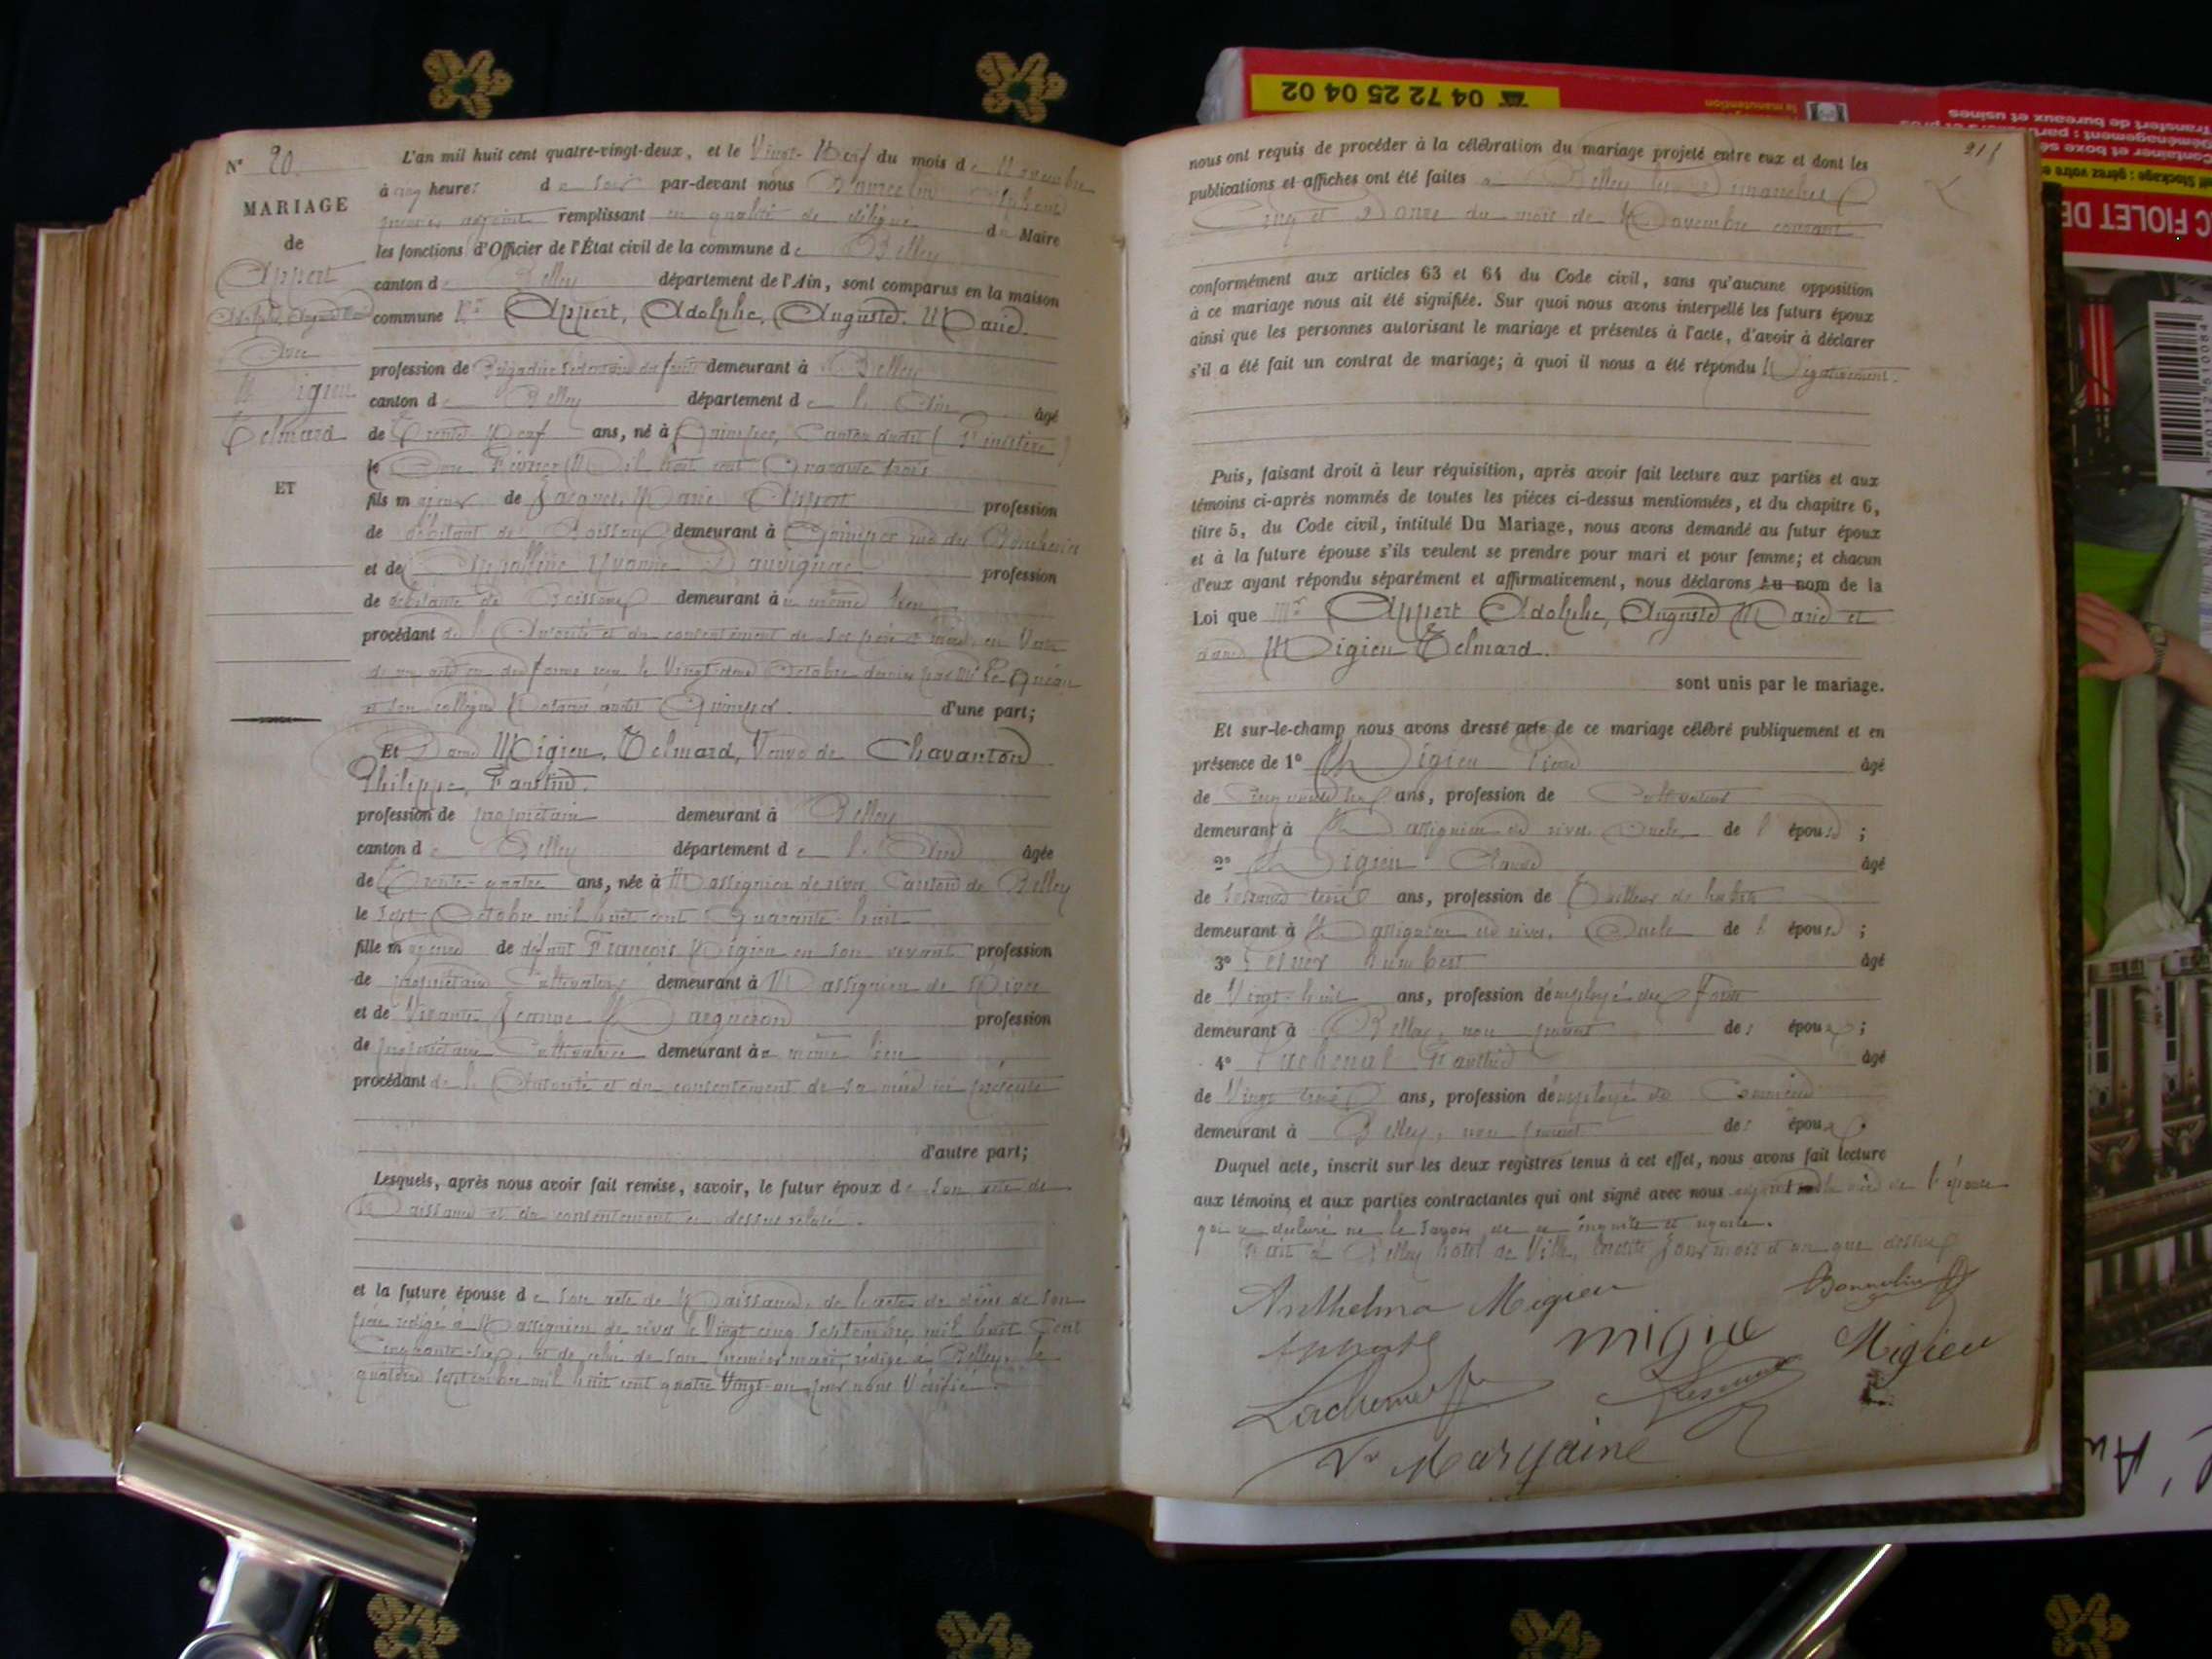 N° 20.
MARIAGE
de
Appert
Adolphe, Auguste
Avec
Migieu
Telmard
ET
L'an mil huit cent quatre-vingt-deux, et le Vingt-Neuf du mois de Novembre
à cinq heures du soir par-devant nous
premier adjoint remplissant en qualité de délégué du Maire
les fonctions d'Officier de l'État civil de la commune de Belley
canton de Belley département de l'Ain, sont comparus en la maison
commune Mr Appert, Adolphe, Auguste, Marie.
profession de Brigadier demeurant à Belley
canton de Belley département de l'Ain âgé
de Trente-Neuf ans, né à Quimper, Canton dudit (Finistère)
le Onze Février Mil huit cent Quarante trois
fils majeur de Jacques, Marie Appert profession
de débitant de Boissons demeurant à Quimper rue des Boucheries
et de Appolline Yvonne Dauvignac profession
de débitante de Boissons demeurant au même lieu
procédant de l'Autorité et du consentement de ses père et mère, en Vertu
le Vingt deux Octobre dernier par Me Le Quéau
et son collègue Notaires audit Quimper. d'une part;
Et Dame Migieu, Telmard, Veuve de Chavanton
Philippe, Faustin.
profession de propriétaire demeurant à Belley
canton de Belley département de l'Ain âgée
de Trente-quatre ans, née à Massignieu de rives Canton de Belley
le Sept Octobre mil huit cent Quarante-huit
fille majeure de défunt François Migieu en son vivant profession
de propriétaire Cultivateur demeurant à Massignieu de Rives
et de Vivante Jeanne profession
de propriétaire Cultivatrice demeurant au même lieu
procédant de l'Autorité et du consentement de sa mère ici présente
d'autre part;
Lesquels, après nous avoir fait remise, savoir, le futur époux de son acte de
Naissance et du consentement ci dessus relaté.
et la future épouse de son acte de Naissance, de l'acte de décès de son
père rédigé à Massignieu de rives le Vingt cinq Septembre mil huit Cent
Cinquante et de celui de son premier mari, rédigé à Belley, le
quatorze Septembre mil huit cent quatre Vingt-un par nous Vérifié.
211
nous ont requis de procéder à la célébration du mariage projeté entre eux et dont les
publications et affiches ont été faites à Belley les Dimanches
Cinq et Douze du mois de Novembre courant
conformément aux articles 63 et 64 du Code civil, sans qu'aucune opposition
à ce mariage nous ait été signifiée. Sur quoi nous avons interpellé les futurs époux
ainsi que les personnes autorisant le mariage et présentes à l'acte, d'avoir à déclarer
s'il a été fait un contrat de mariage; à quoi il nous a été répondu Négativement.
Puis, faisant droit à leur réquisition, après avoir fait lecture aux parties et aux
témoins ci-après nommés de toutes les pièces ci-dessus mentionnées, et du chapitre 6,
titre 5, du Code civil, intitulé Du Mariage, nous avons demandé au futur époux
et à la future épouse s'ils veulent se prendre pour mari et pour femme; et chacun
d'eux ayant répondu séparément et affirmativement, nous déclarons au nom de la
Loi que Mr Appert Adolphe, Auguste Marie et
dame Migieu Telmard.
sont unis par le mariage.
Et sur-le-champ nous avons dressé acte de ce mariage célébré publiquement et en
présence de 1° Migieu âgé
de ans, profession de Cultivateur
demeurant à Massignieu de rives Oncle de l'épouse;
2° Migieu Claude âgé
de ans, profession de Tailleur de habits
demeurant à Massignieu de rives, Oncle de l'épouse;
3° Humbert âgé
de Vingt-huit ans, profession d'employé des
demeurant à Belley, non parent des époux;
4° Lachenal âgé
de Vingt trois ans, profession d'employé de Commerce
demeurant à Belley, non parent des époux.
Duquel acte, inscrit sur les deux registres tenus à cet effet, nous avons fait lecture
aux témoins et aux parties contractantes qui ont signé avec nous excepté la mère de l'épouse
qui a déclaré ne le savoir de ce enquise et
Fait à Belley hôtel de Ville, lesdits jour mois et an que dessus
Anthelma Migieu
Appert
Migieu
Migieu
Lachenal
Ve Margaine
04 72 25 04 02
la manutention
Transfert de bureaux et usines
C FIOLET DE